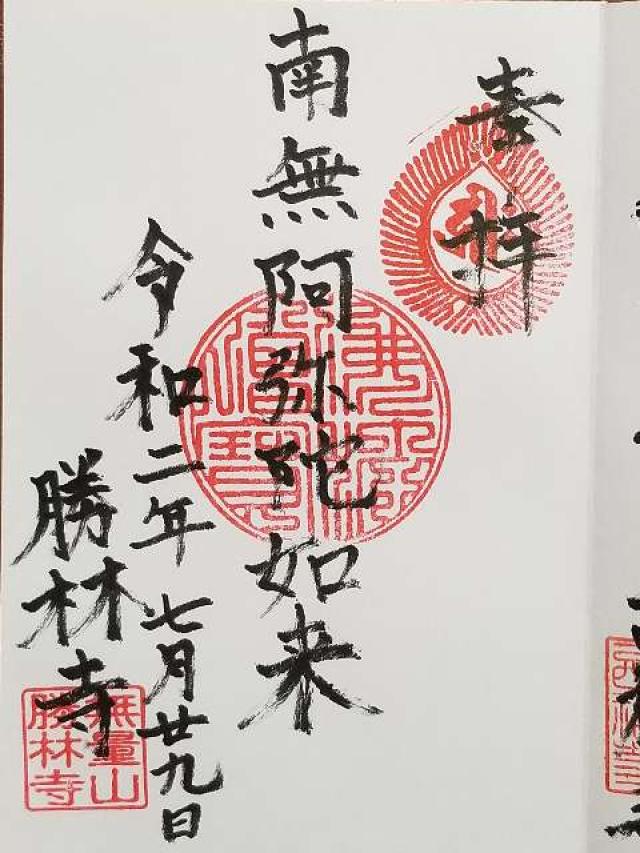 奉拝
南無阿弥陀如来
令和二年七月廿九日
勝林寺
佛法僧寳
無量山
勝林寺